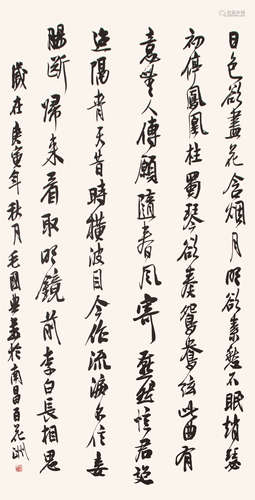 日色欲盡花含烟月明欲素愁不眠趙瑟
初停鳳凰柱蜀琴欲奏鴛鴦弦此曲有
意無人傳願隨春風寄燕然憶君迢
迢隔青天昔時横波目今作流淚泉不信妾
腸斷歸來看取明鏡前李白長相思
歲在庚寅年秋月毛國典書於南昌百花洲